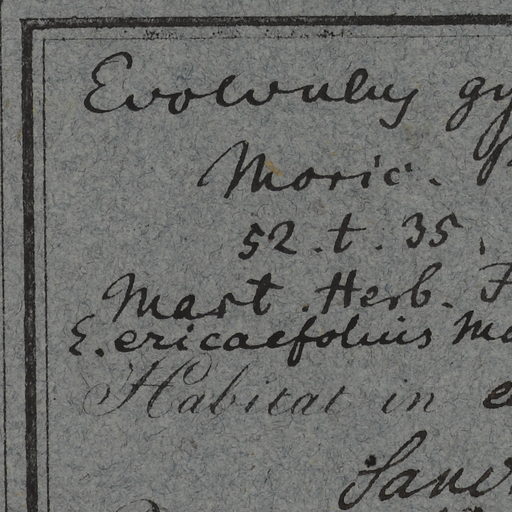 Evolvulus gy
Moric. P
52. t. 35.
Mart. Herb. F
E. ericaefolius Ma
Habitat in e
San